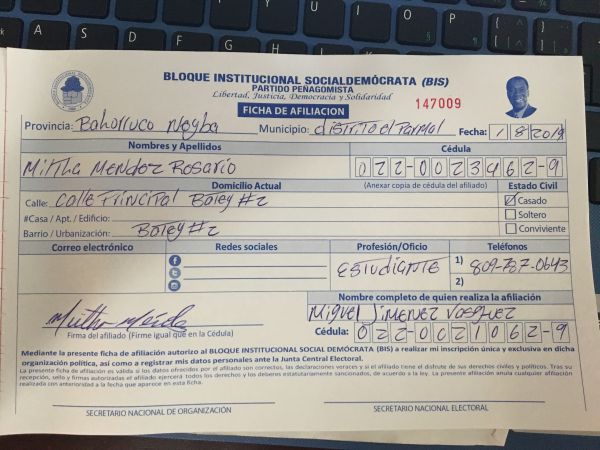 BLOQUE INSTITUCIONAL SOCIALDEMÓCRATA (BIS)
PARTIDO PEÑAGOMISTA
Libertad, Justicia, Democracia y Solidaridad
FICHA DE AFILIACION
147009
Provincia: Bahorruco Neyba Municipio: Distrito el Palmal Fecha: 1/8/2019
Nombres y Apellidos Cédula
Mirtha Mendez Rosario 022-0023462-9
Domicilio Actual (Anexar copia de cédula del afiliado) Estado Civil
Calle: Calle Principal Batey #2 Casado
#Casa / Apt. / Edificio: Soltero
Barrio / Urbanización: Batey #2 Conviviente
Correo electrónico Redes sociales Profesión/Oficio Teléfonos
Estudiante 1) 809-787-0643
2)
Nombre completo de quien realiza la afiliación
Miguel Jimenez Vasquez
Firma del afiliado (Firme igual que en la Cédula) Cédula: 022-0021062-9
Mediante la presente ficha de afiliación autorizo al BLOQUE INSTITUCIONAL SOCIAL DEMÓCRATA (BIS) a realizar mi inscripción única y exclusiva en dicha
organización política, así como a registrar mis datos personales ante la Junta Central Electoral.
La presente ficha de afiliación es válida si los datos ofrecidos por el afiliado son correctos, las declaraciones veraces y si el afiliado tiene el disfrute de sus derechos civiles y políticos. Tras su
recepción, sello y firmas autorizadas el afiliado ejercerá todos los derechos y los deberes estatutariamente sancionados, de acuerdo a la ley. La presente afiliación anula cualquier afiliación
realizada con anterioridad a la fecha que aparece en esta ficha.
SECRETARIO NACIONAL DE ORGANIZACIÓN SECRETARIO NACIONAL ELECTORAL